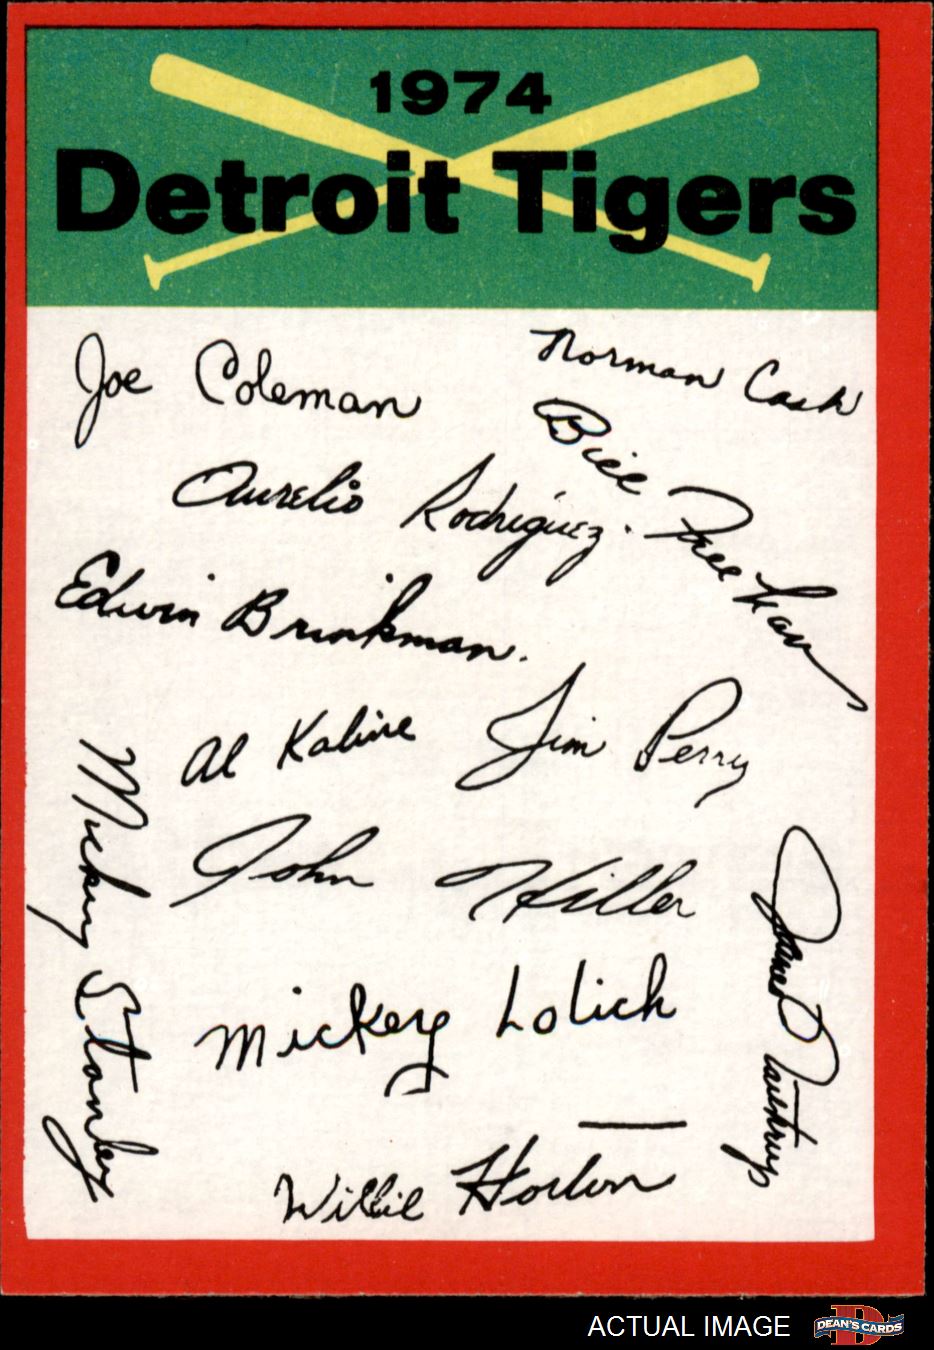 1974
Detroit Tigers
Joe Coleman
Norman Cash
Bill Freehan
Aurelio Rodriguez.
Edwin Brinkman.
Al Kaline
Jim Perry
Mickey Stanley
John Hiller
James
Mickey Lolich
Willie Horton
ACTUAL IMAGE
DEAN'S CARDS